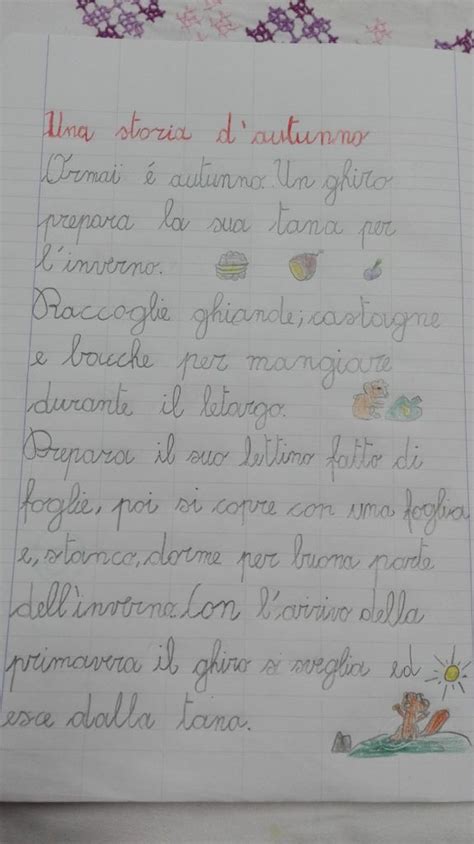 Una storia d'autunno
Ormai é autunno. Un ghiro
prepara la sua tana per
l'inverno.
Raccoglie ghiande, castagne
e bacche per mangiare
durante il letargo.
Prepara il suo lettino fatto di
foglie, poi si copre con una foglia
e, stanco, dorme per buona parte
dell'inverno. Con l'arrivo della
primavera il ghiro si sveglia ed
esce dalla tana.